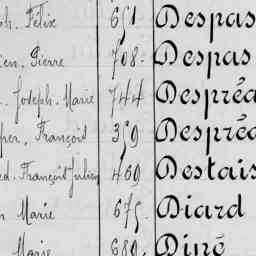 ph. Félix 651 Despas
ien. Pierre 708. Despas
. Joseph. Marie 744 Despréa
per. François 359 Despréa
ed. François Julien 469 Destais
n Marie 675. Diard
Marie 689. Diné